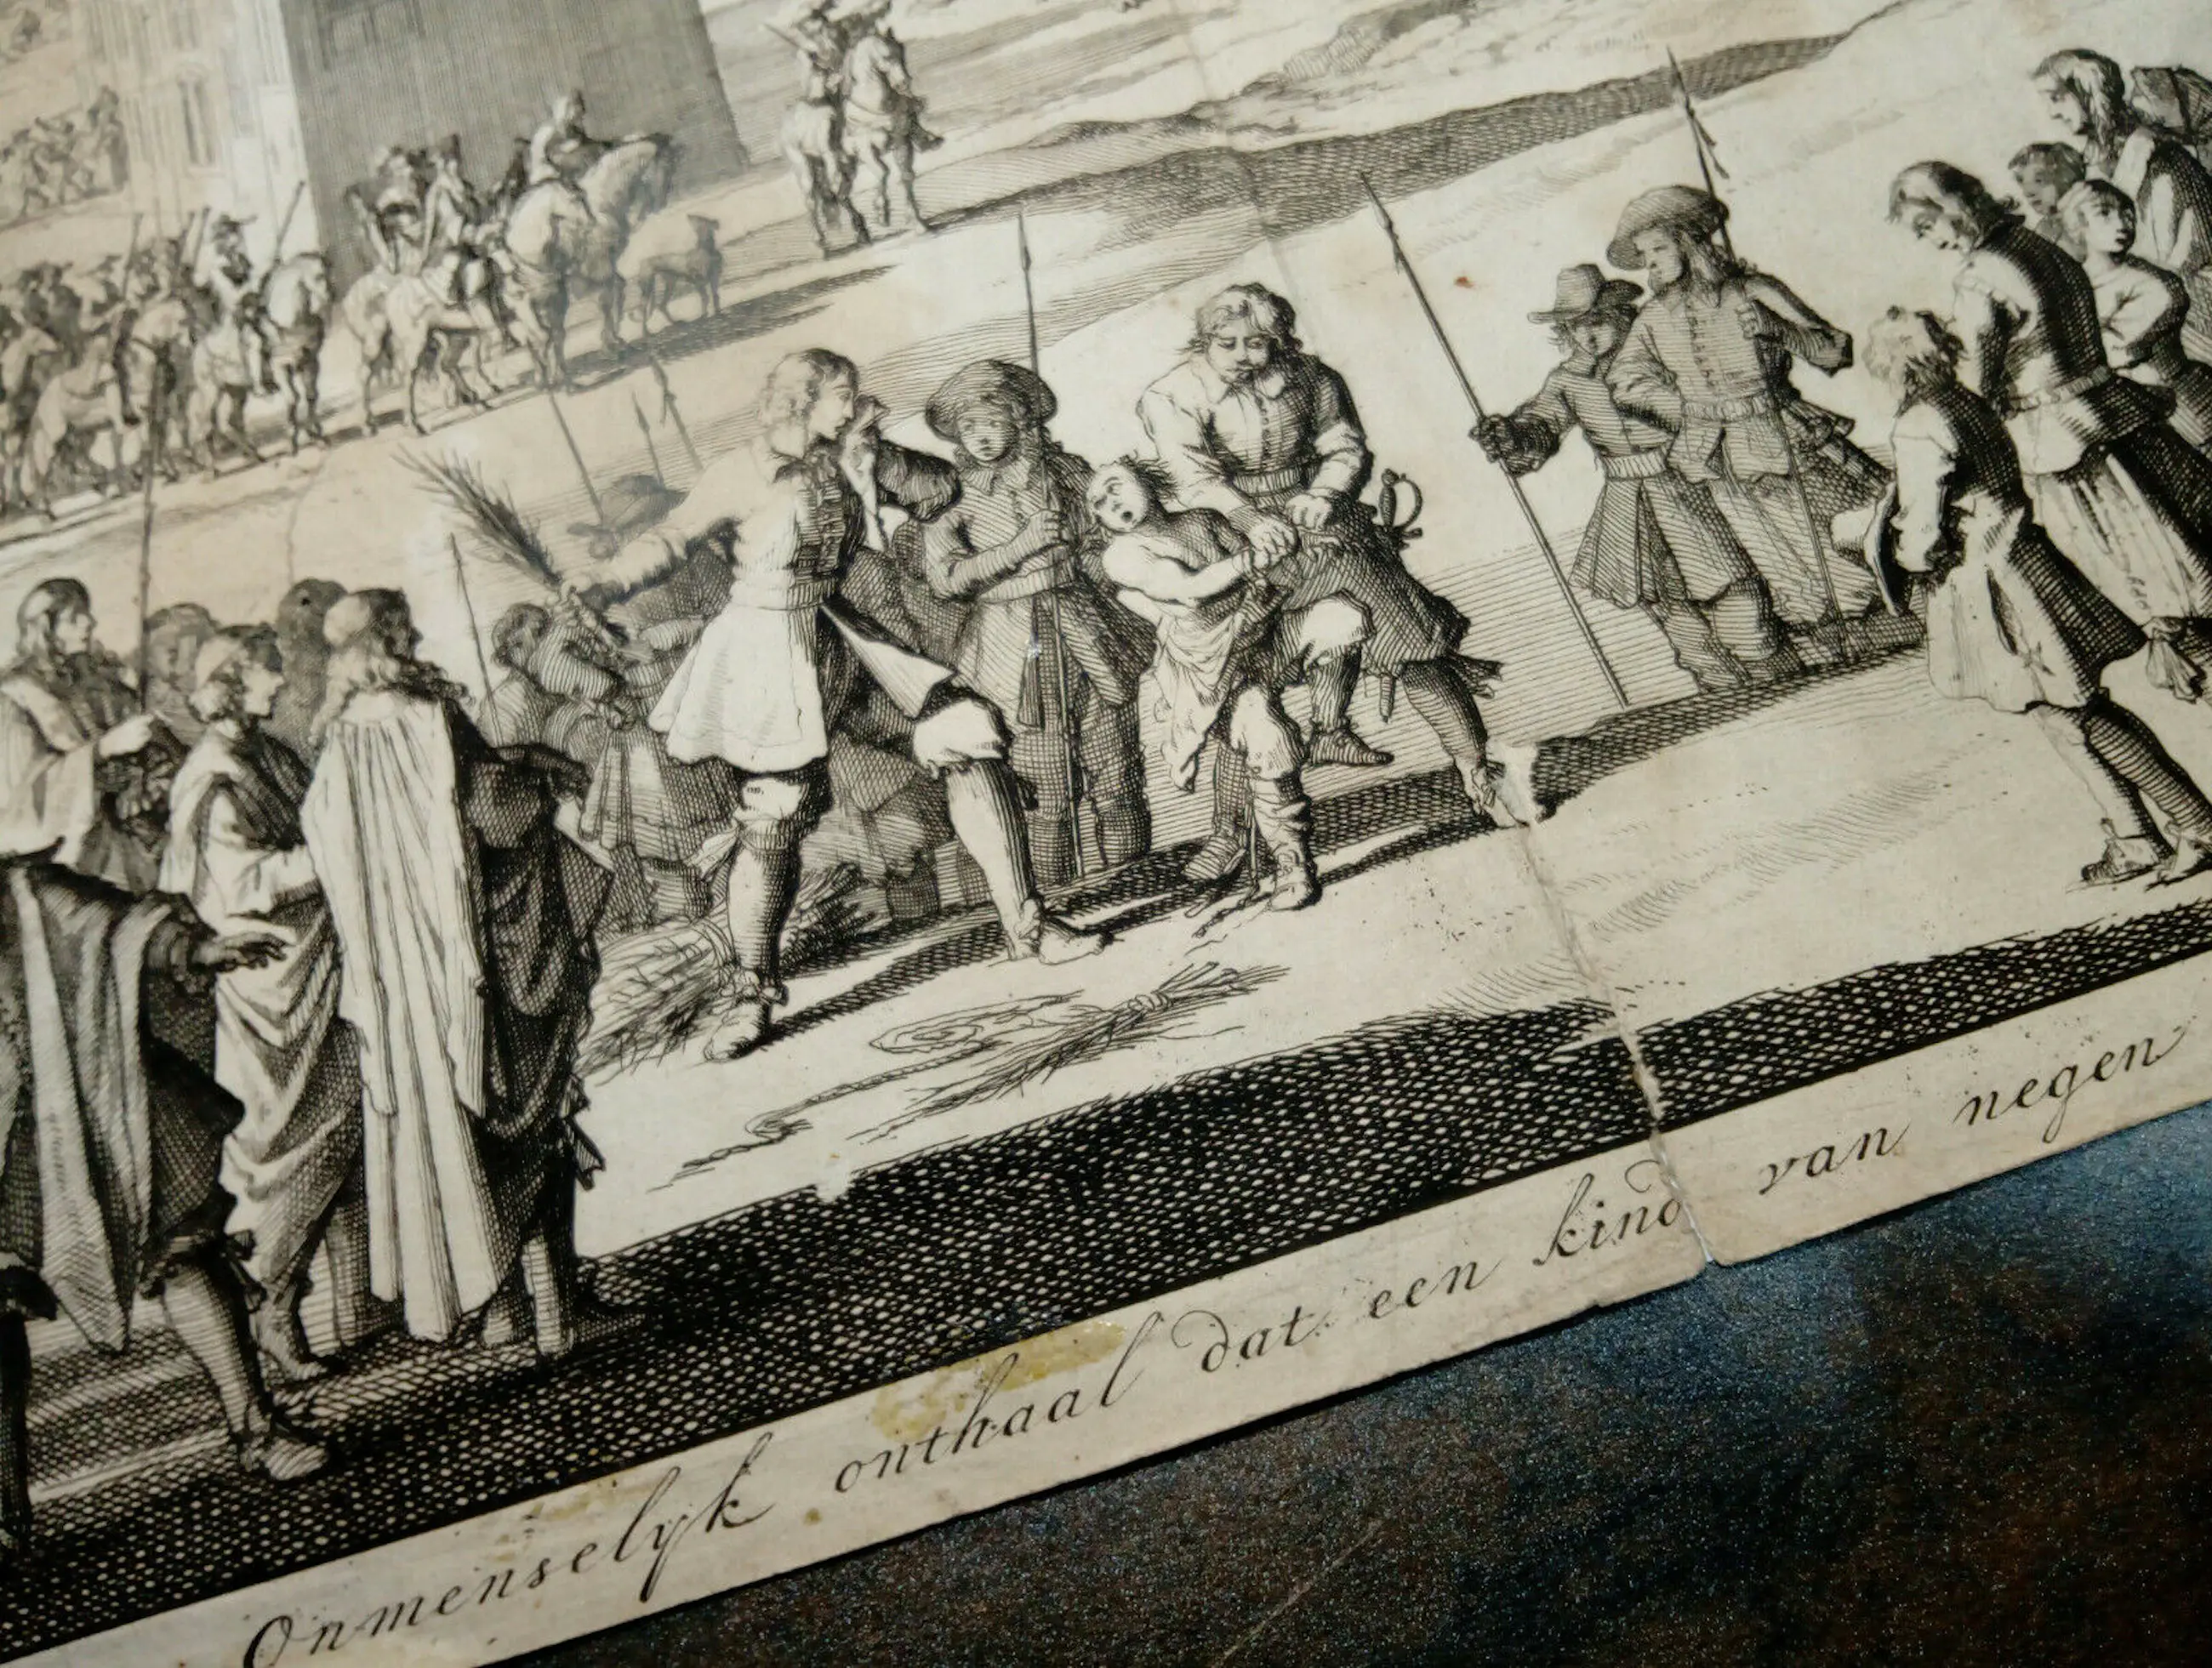 Onmenselyk onthaal dat een kind van negen